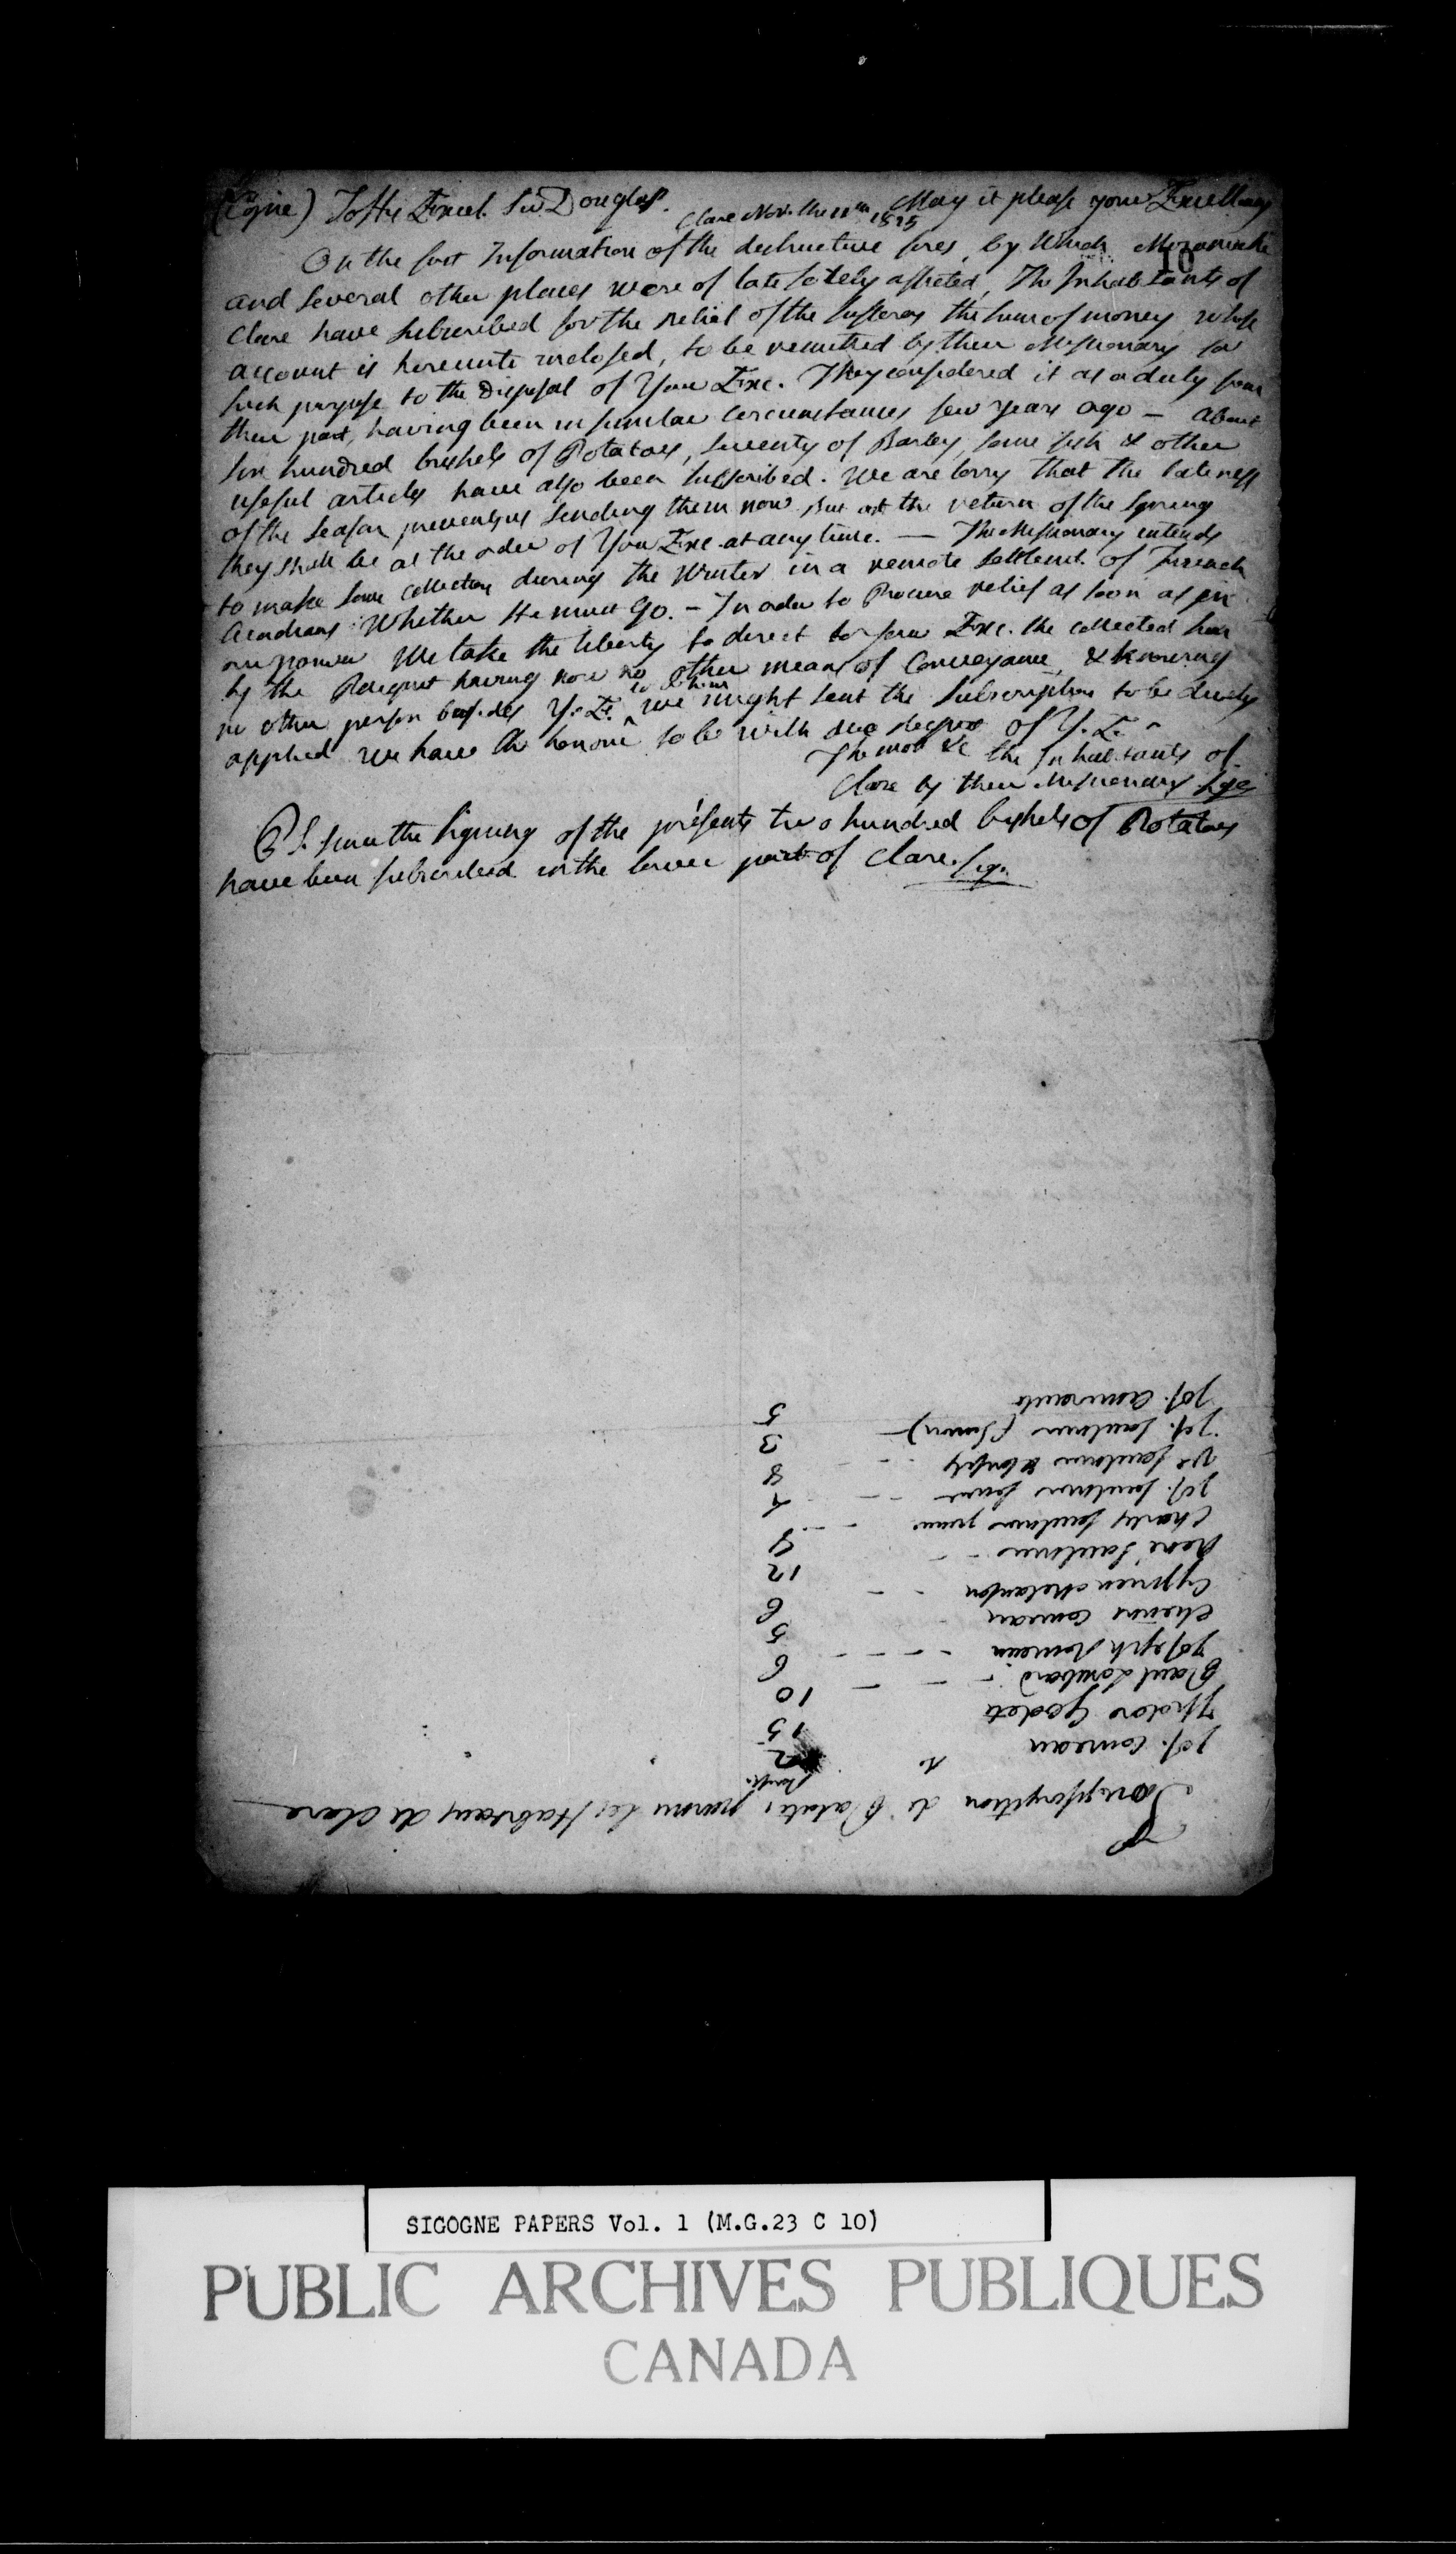 (Copie) To His Excel. Sir Douglass. Clare Nov. the 11th 1825 May it please your Excellency
10
On the first Information of the destructive fires, by Which Miramichi
and several other places were of late so afflicted, The Inhabitants of
Clare have subscribed for the relief of the sufferers the sum of money whose
account is hereunto inclosed, to be remitted by their Missionary for
such purpose to the Disposal of Your Exc. They considered it as a duty from
their part, having been in similar circumstances few years ago – about
six hundred bushels of Potatoes, seventy of Barley, some fish & other
useful articles have also been subscribed. We are sorry that the lateness
of the season prevents us sending them now but at the return of the spring
they shall be at the order of Your Exc. at any time. — The Missionary intends
to make some collection during the Winter in a remote settlemt. of French
Acadians Whither He must go. – In order to Procure relief as soon as in
our power We take the liberty to direct to your Exc. the collected sum
by the Pacquet having now no other mean of Conveyance, & knowing
no other person besides Y. E. to whom we might sent the subscription to be duely
applied We have the honour to be with due respect of Y. E.
The most &c the Inhabitants of
Clare by their Missionary Sig.
P.S. since the signing of the présents two hundred bushels of Potatoes
have been subscribed in the lower part of Clare. Sig.
Soupscription de Patates parmi les Habitans de Clare
Jos. Comeau 15
Isidore Godet 10
Paul Lombard 6
Joseph 5
Comeau 6
Cyprien Melanson 12
René Saulnier
Charles Saulnier
Jos. Saulnier
Ve Saulnier 8
Jos. Saulnier 3
Jos. Amirault 5
SIGOGNE PAPERS Vol. 1 (M.G.23 C 10)
PUBLIC ARCHIVES PUBLIQUES
CANADA